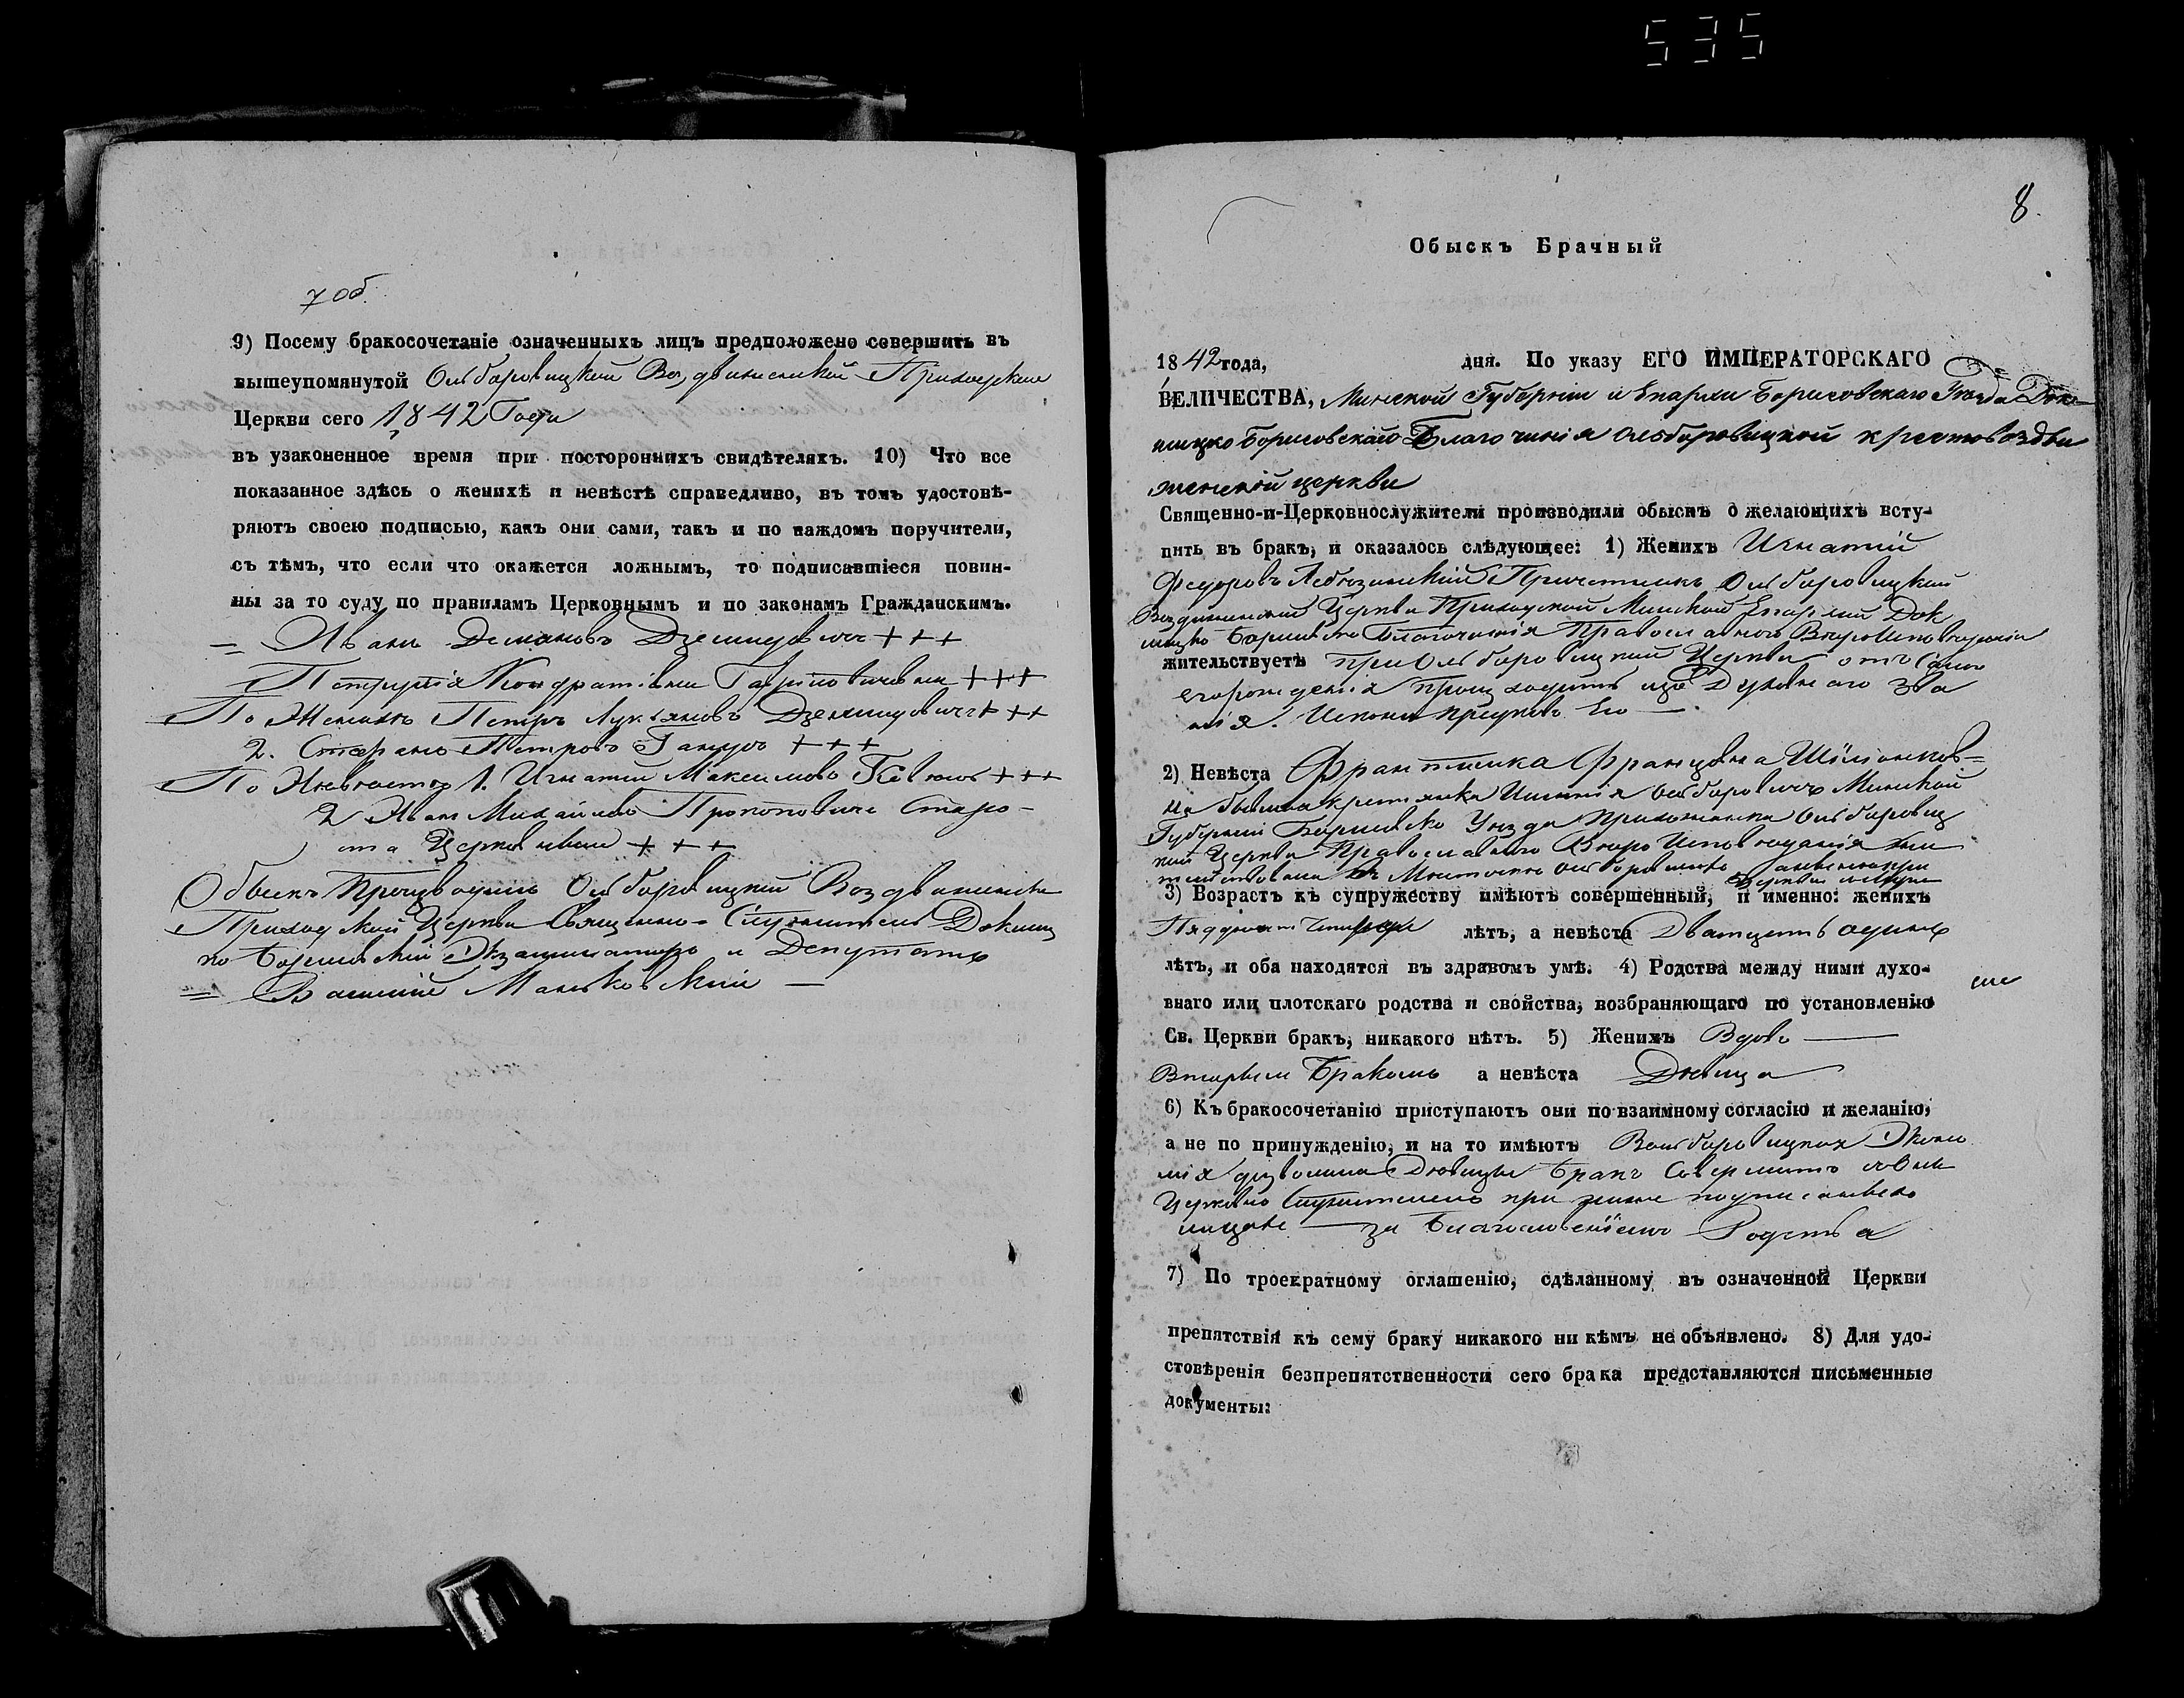 535
7 об.
9) Посему бракосочетаніе означенныхъ лицъ предположено совершить въ
вышеупомянутой Ольборовицкой Воздвиженской Приходской
Церкви сего 1842 Года
въ узаконенное время при постороннихъ свидѣтеляхъ. 10) Что все
показанное здѣсь о женихѣ и невѣстѣ справедливо, въ томъ удостовѣ-
ряютъ своею подписью, какъ они сами, такъ и по каждомъ поручители,
съ тѣмъ, что если что окажется ложнымъ, то подписавшіеся повин-
ны за то суду по правиламъ Церковнымъ и по законамъ Гражданскимъ.
= Иванъ +++
+++
По Женихѣ Петръ Лукьяновъ +++
2. Петровъ +++
По Невѣстѣ 1. Игнатій Максимовъ +++
2 Иванъ Михайловъ Прокоповичъ Старо-
ста Церковный +++
Обыскъ Производилъ Ольборовицкой Воздвиженской
Приходской Церкви Священно-Служитель Докшиц
ко Борисовскій Экзаминаторъ и Депутатъ
= Василій Маньковскій —
8.
Обыскъ Брачный
1842 года, дня. По указу ЕГО ИМПЕРАТОРСКАГО
ВЕЛИЧЕСТВА, Минской Губерніи и Епархіи Борисовскаго Уѣзда Док-
шицко Борисовскаго Благочинія Ольборовицкой крестовоздви
женской церкви
Священно-и-Церковнослужители производили обыскъ о желающихъ всту-
пить въ бракъ, и оказалось слѣдующее: 1) Женихъ Игнатій
Федоровъ Причетникъ Ольборовицкой
Воздвиженской Церкви Приходской Минской Епархіи Док
шицко Борисовско Благочинія Православного Вѣроисповѣданія
жительствуетъ при Ольборовицкой Церкви отъ само
егорожденія изъ Духовнаго Зва
нія. Его —
2) Невѣста Франтишка Францовна
Имѣнія Минской
Губерніи Борисовско Уѣзда прихожанка Ольборовиц
кой Церкви Православного Вѣро Исповѣданія
3) Возрастъ къ супружеству имѣютъ совершенный, и именно: женихъ
лѣтъ, а невѣста Дватцеть одинъ
лѣтъ, и оба находятся въ здравомъ умѣ. 4) Родства между ними духо-
внаго или плотскаго родства и свойства, возбраняющаго по установленію
Св. Церкви бракъ, никакого нѣтъ. 5) Женихъ Вдовъ —
Вторымъ Бракомъ а невѣста Дѣвица
6) Къ бракосочетанію приступаютъ они по взаимному согласію и желанію,
а не по принужденію, и на то имѣютъ
Дѣвицы Бракъ Совершить
Церковно Служителемъ при
— за Благословеніемъ Родства
7) По троекратному оглашенію, сдѣланному въ означенной Церкви
препятствія къ сему браку никакого ни кѣмъ не объявлено. 8) Для удо-
стовѣренія безпрепятственности сего брака представляются письменные
документы: